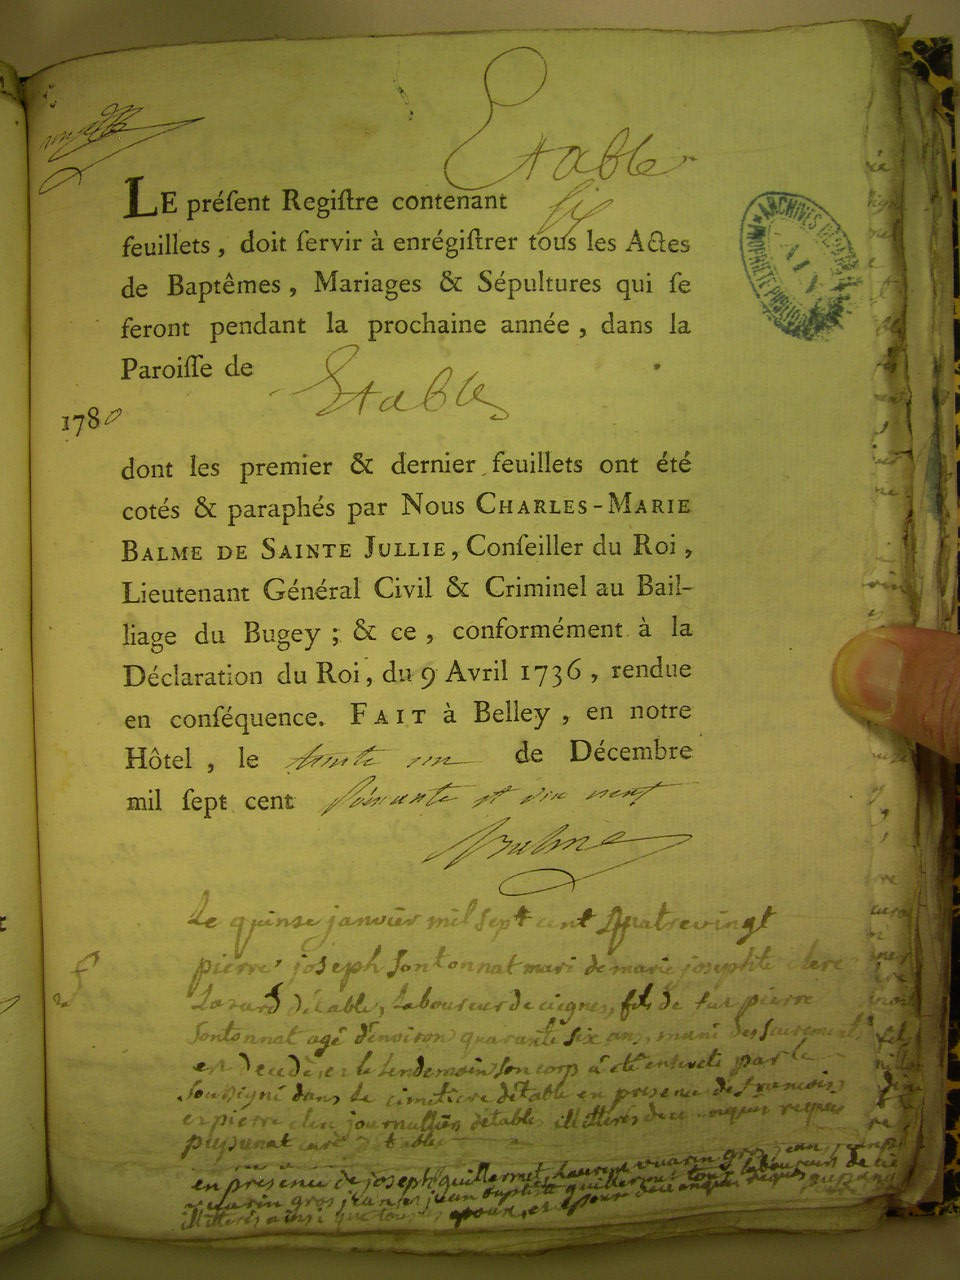 Etable
LE préſent Regiſtre contenant six
feuillets, doit ſervir à enrégiſtrer tous les Actes
de Baptêmes, Mariages & Sépultures qui ſe
feront pendant la prochaine année, dans la
Paroiſſe de
Etables
1780
dont les premier & dernier feuillets ont été
cotés & paraphés par Nous CHARLES-MARIE
BALME DE SAINTE JULLIE, Conſeiller du Roi,
Lieutenant Général Civil & Criminel au Bail-
liage du Bugey; & ce, conformément à la
Déclaration du Roi, du 9 Avril 1736, rendue
en conſéquence. FAIT à Belley, en notre
Hôtel, le trente un de Décembre
mil ſept cent soixante et dix neuf
Balme
ARCHIVES DE
AIN
PROPRIÉTÉ PUBLIQUE
Le quinse janvier mil sept cent quatrevingt
pierre joseph Sontonnat mari de marie josephte clerc
Lazard d'étable, Laboureur de ciegnes, fils de feu pierre
Sontonnat agé d'environ quarante six ans, muni des sacrements
est decedé, et le lendemain son corp a été enseveli par le
Soussigné dans le cimetiere d'étable en presence de francois
et pierre clerc journalliers d'étable illitterés de ce enquis requis
puysunat curé d'étables
en presence de joseph quillermet, laurent vuarin gros jean,
vuarin gros jean et jean baptiste quillermet tous laboureurs de
illitterés ainsi que tous les epoux, et de ce enquis requis